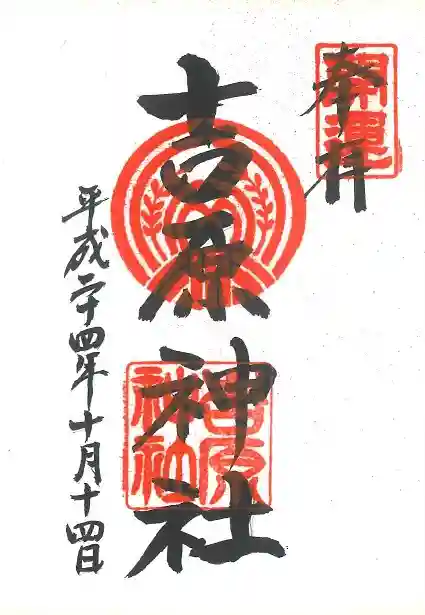 奉拝
開運
吉原神社
吉原
神社
平成二十四年十月十四日